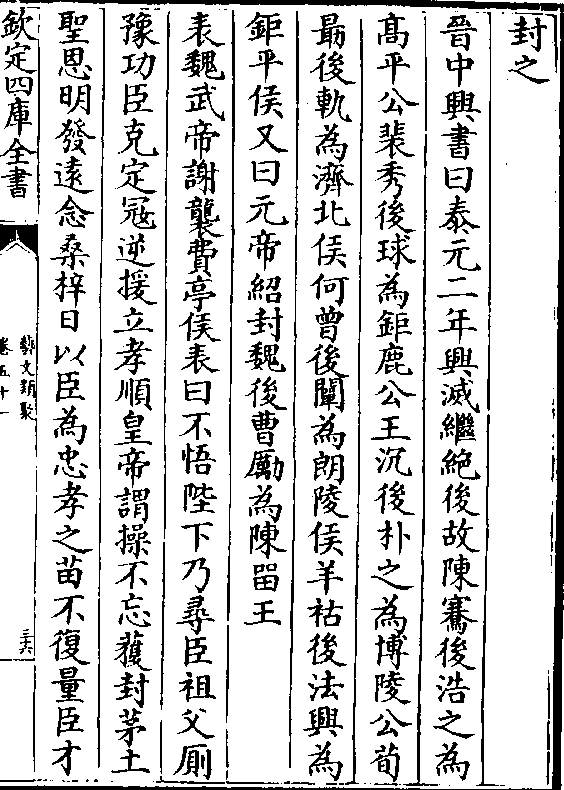 封之
晉中興書曰泰元二年興滅繼絶後故陳騫後浩之為
髙平公裴秀後球為鉅鹿公王沉後朴之為博陵公荀
勗後軌為濟北侯何曾後闡為朗陵侯羊祜後法興為
鉅平侯又曰元帝紹封魏後曹勵為陳留王
表魏武帝謝襲費亭侯表曰不悟陛下乃尋臣祖父厠
豫功臣克定冦逆援立孝順皇帝謂操不忘獲封茅土
聖恩明發遠念桑梓日以臣為忠孝之苗不復量臣才
欽定四庫全書
藝文類聚
卷五十一
三六